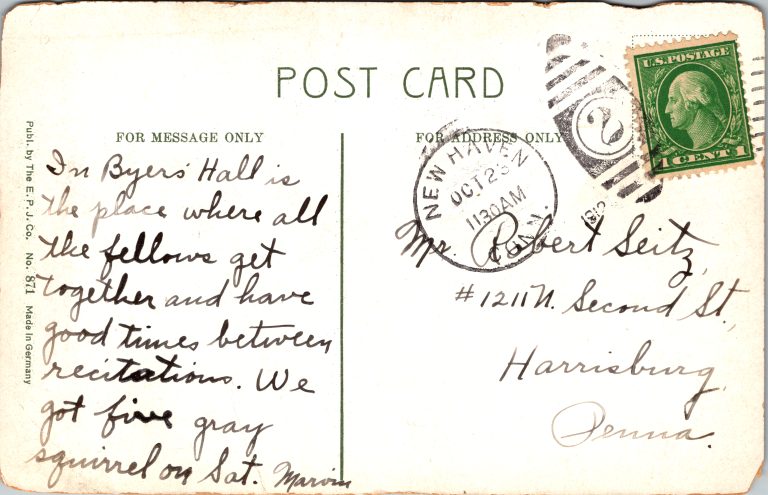 POST CARD
FOR MESSAGE ONLY
FOR ADDRESS ONLY
Publ. by The E.P.J. Co. No. 871 Made in Germany
In Byers' Hall is
the place where all
the fellows get
together and have
good times between
recitations. We
got five gray
squirrel on Sat. Marvin
NEW HAVEN
OCT 23
1130AM
CONN.
2
U.S. POSTAGE
1 CENT 1
Mr. Robert Seitz,
#1211 N. Second St.,
Harrisburg,
Penna.